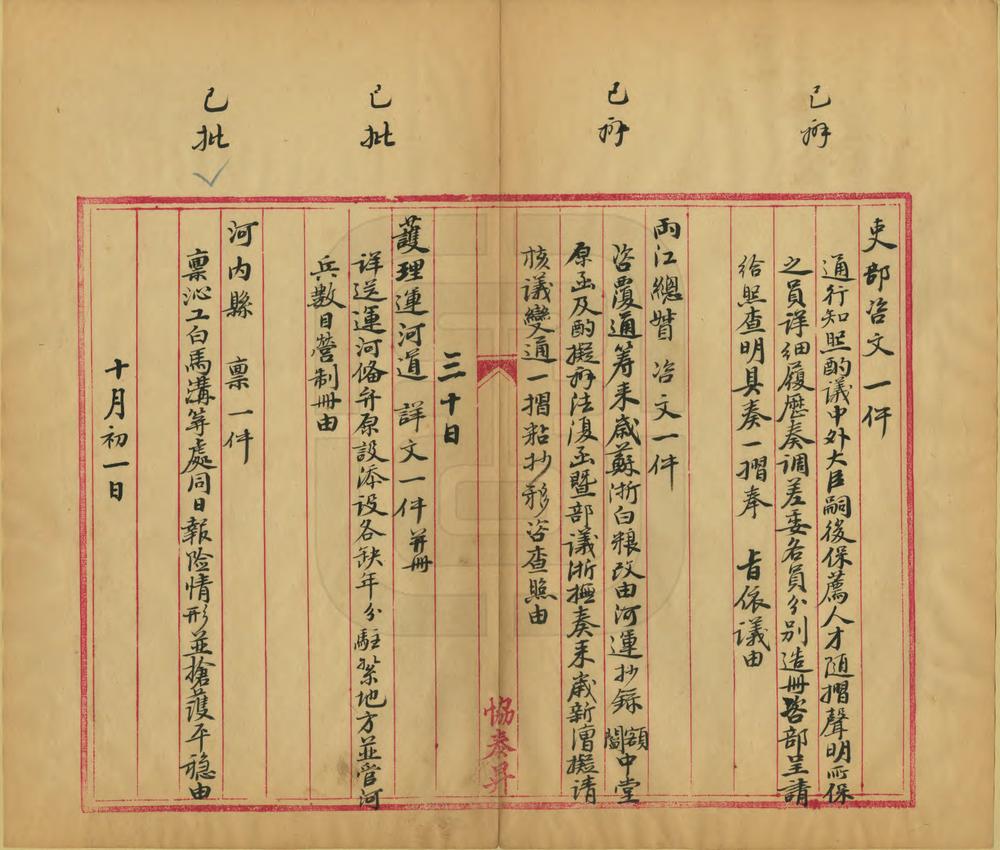 已辦
吏部咨文一件
通行知照酌議中外大臣嗣後保薦人才隨摺聲明所保
之員詳細履歷奏調差委各員分別造册咨部呈請
給照查明具奏一摺奉 旨依議由
已辦
兩江總督 咨文一件
咨覆通籌来歲蘇浙白粮改由河運抄錄 額閣中堂
原函及酌擬辦法復函暨部議浙撫奏来歲新漕擬請
核議變通一摺粘抄移咨查照由
三十日
已批
護理運河道 詳文一件 并册
詳送運河俻弁原設添设各缺年分駐紮地方並管河
兵數目營制册由
已批
河内縣 禀一件
禀沁工白馬溝等處同日報险情形並搶護平穏由
十月初一日
協泰昇